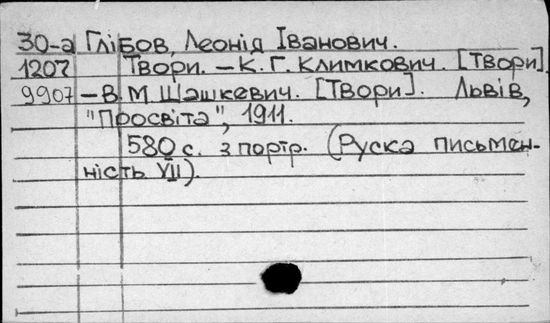 30-а Глібов, Леонід Іванович.
1207 Твори. – К. Г. Климкович. [Твори]
9907 – В. М. Шашкевич. [Твори]. Львів,
"Просвіта", 1911.
580 с. з портр. (Руска письмен-
ність VII).